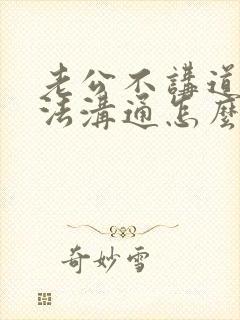 老公不講道
法溝通怎麼
奇妙雪